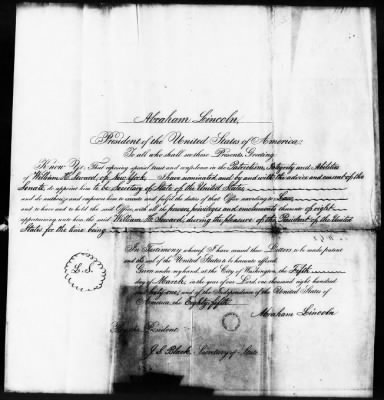 Abraham Lincoln,
President of the United States of America.
To all who shall see these Presents, Greeting:
Know Ye; That reposing special trust and confidence in the Patriotism, Integrity and Abilities
of William H. Seward, of New York, I have nominated, and by and with the advice and consent of the
Senate, do appoint him to be Secretary of State of the United States
and do authorize and empower him to execute and fulfil the duties of that Office according to Law,
and to have and to hold the said Office, with all the powers, privileges and emoluments thereunto of right
appertaining unto him the said William H. Seward, during the pleasure of the President of the United
States for the time being.
In Testimony whereof I have caused these Letters to be made patent
and the seal of the United States to be hereunto affixed.
L.S.
Given under my hand, at the City of Washington, the Fifth
day of March, in the year of our Lord, one thousand eight hundred
and Sixty one; and of the Independence of the United States of
America, the Eighty fifth.
Abraham Lincoln
By the President:
J. S. Black, Secretary of State.